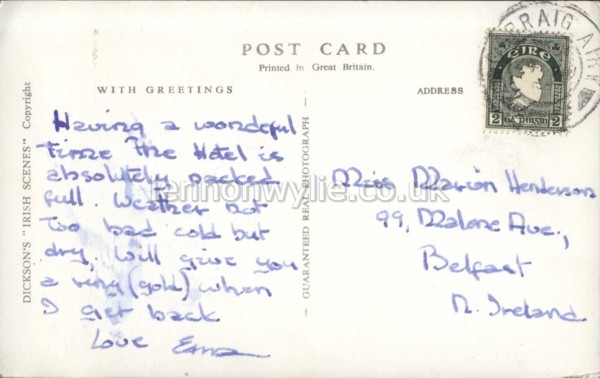 POST CARD
Printed in Great Britain.
WITH GREETINGS
ADDRESS
Having a wonderful
Time The Hotel is
absolutely packed
full. Weather not
too bad cold but
dry. Will give you
a ring (gold) when
I get back
Love
Miss Marion Henderson
99, Malone Ave.,
Belfast
N. Ireland
DICKSON'S "IRISH SCENES" Copyright
GUARANTEED REAL PHOTOGRAPH
éire
2
2
vernonwylie.co.uk